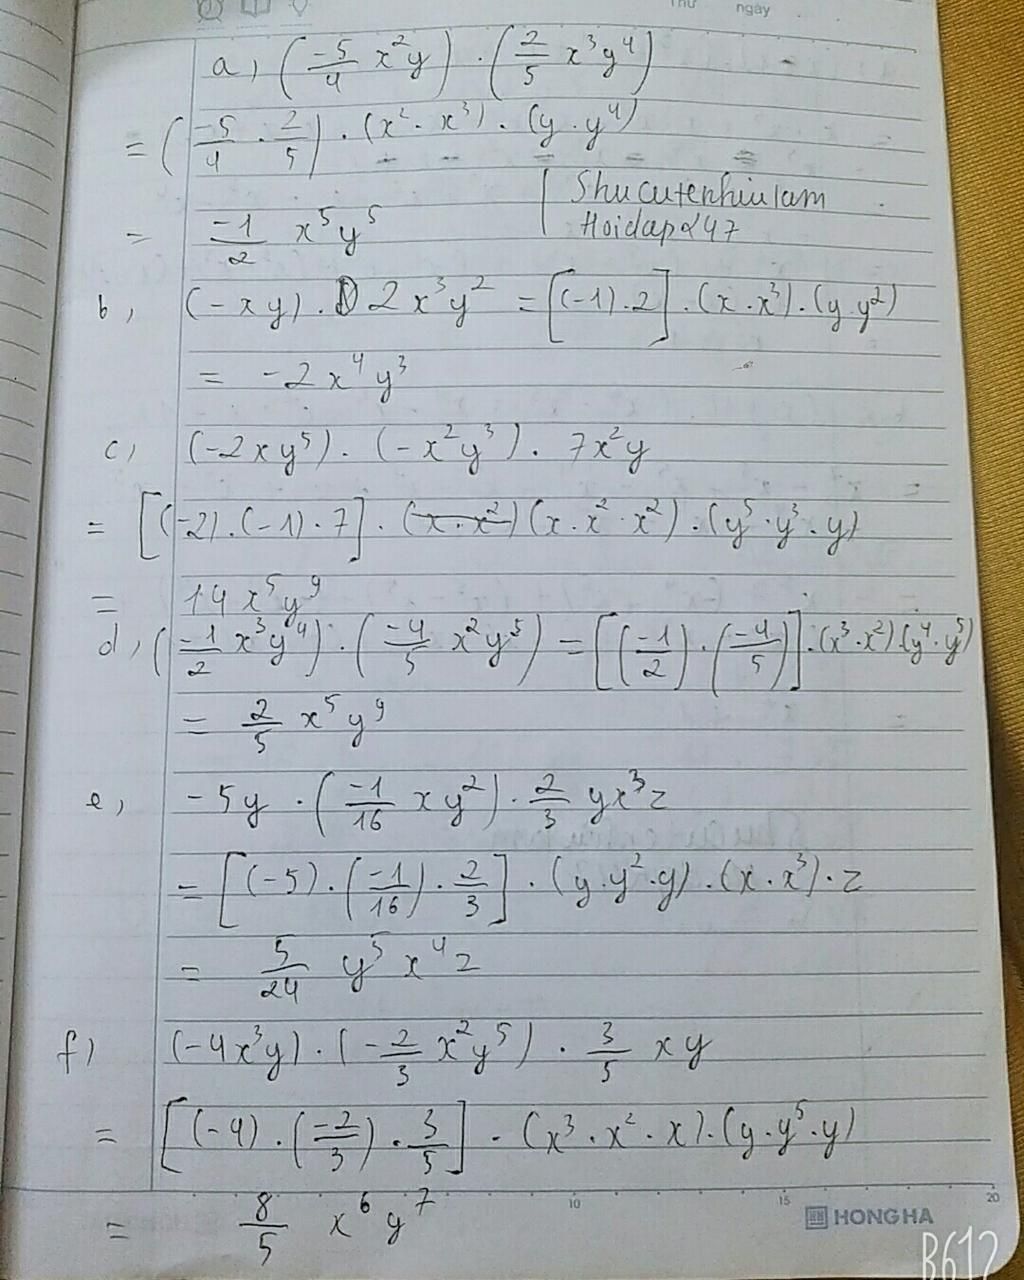 Thứ ngày
a, (-5/4 x²y) · (2/5 x³y⁴)
= (-5/4 · 2/5) · (x² · x³) · (y · y⁴)
Shucutenhiulam
Hoidap247
= -1/2 x⁵y⁵
b, (-xy) · 2x³y² = [(-1) · 2] · (x · x³) · (y · y²)
= -2x⁴y³
c, (-2xy⁵) · (-x²y³) · 7x²y
= [(-2) · (-1) · 7] · (x · x²) (x · x² · x²) · (y⁵ · y³ · y)
= 14x⁵y⁹
d, (-1/2 x³y⁴) · (-4/5 x²y⁵) = [(-1/2) · (-4/5)] · (x³ · x²) · (y⁴ · y⁵)
= 2/5 x⁵y⁹
e, -5y · (-1/16 xy²) · 2/3 yx³z
= [(-5) · (-1/16) · 2/3] · (y · y² · y) · (x · x³) · z
= 5/24 y⁵x⁴z
f, (-4x³y) · (-2/3 x²y⁵) · 3/5 xy
= [(-4) · (-2/3) · 3/5] · (x³ · x² · x) · (y · y⁵ · y)
= 8/5 x⁶y⁷
10 15 20
HONG HA
B612